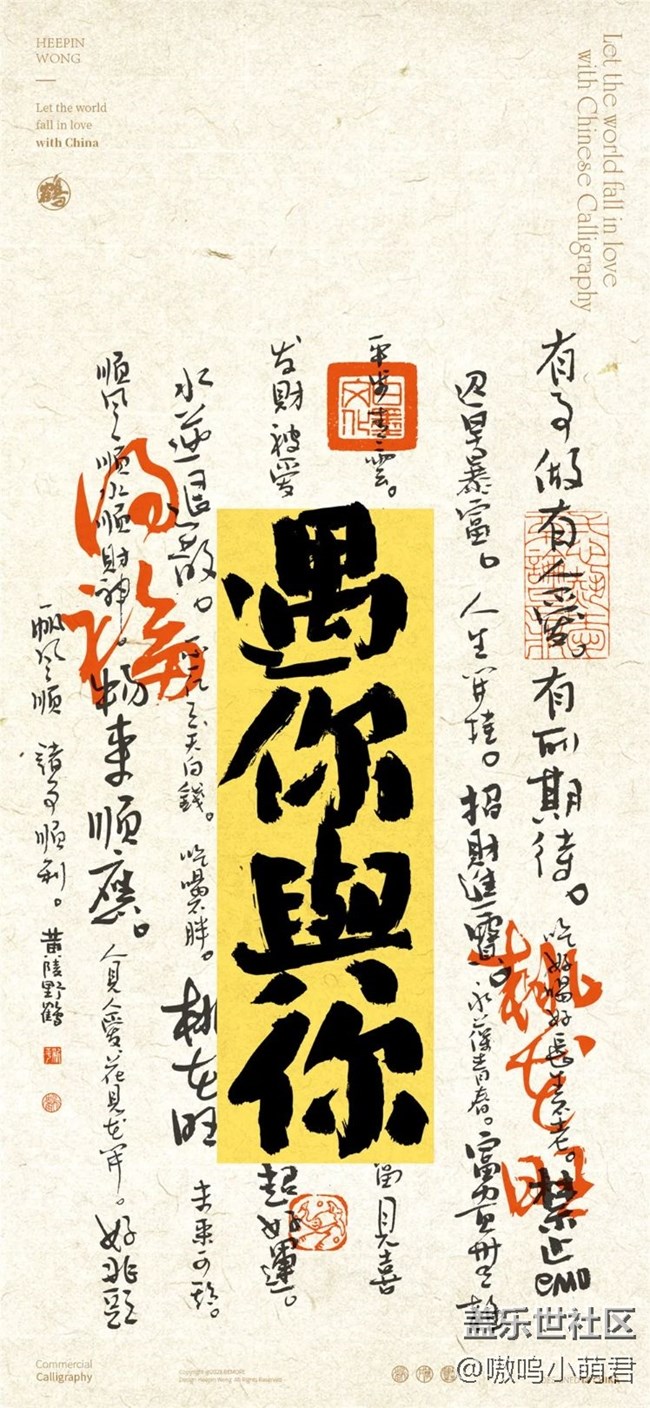 HEEPIN
WONG
Let the world
fall in love
with China
鶴
Let the world fall in love
with Chinese Calligraphy
有事做有人愛。有所期待。
吃好喝好長生不老。禁止emo
桃花旺
迟早暴富。人生開挂。招財進寶。永葆青春。
平步青雲。
白墨
文化
遇你與你
當見喜
发財被愛
超好運。
水逆退散。
吃喝不胖。桃花旺
未来可期。
順風順水順財神。物来順應。
人見人愛花見花開。好非
滿福
一帆風順 諸事順利。黄陵野鶴
Commercial
Calligraphy
盖乐世社区
@嗷呜小萌君